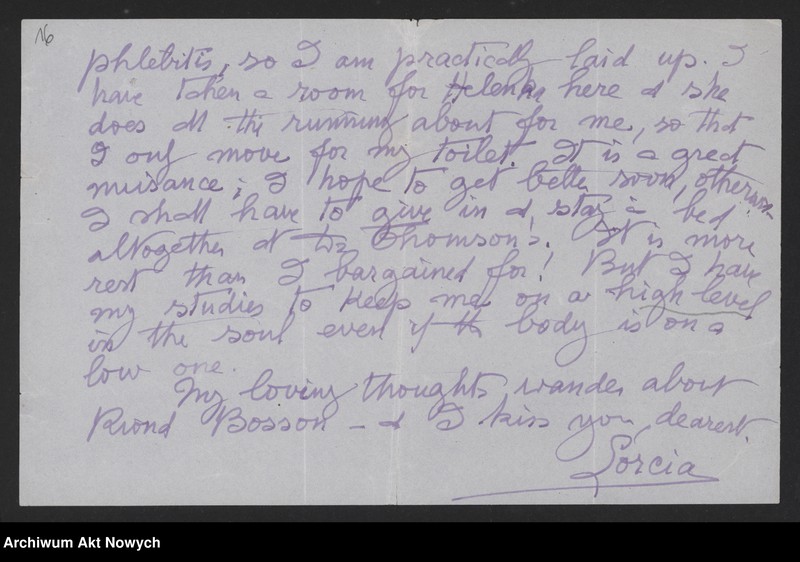 16
phlebitis, so I am practically laid up. I
have taken a room for Helenka here & she
does all the running about for me, so that
I only move for my toilet. It is a great
nuisance; I hope to get better soon, otherwise
I shall have to give in & stay in bed
altogether at Dr Thomson's. It is more
rest than I bargained for! But I have
my studies to keep me on a high level
in the soul even if the body is on a
low one.
My loving thoughts wander about
Riond Bosson - & I kiss you, dearest.
Lorcia
Archiwum Akt Nowych